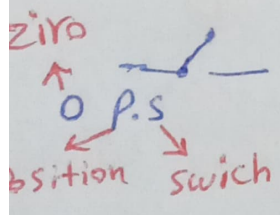 ziro
O P.S
bsition swich